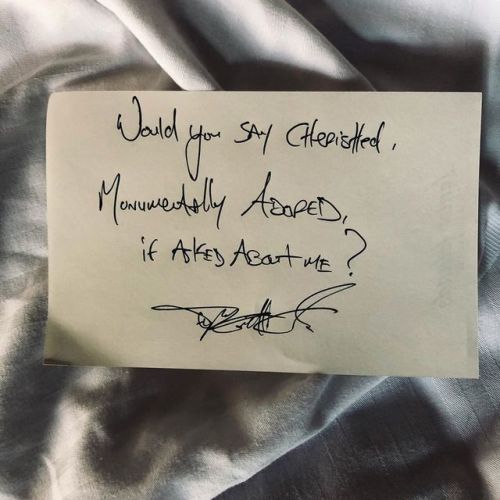 Would you SAY CHERISHED,
MONUMENTALLY ADORED,
if ASKED ABOUT ME?